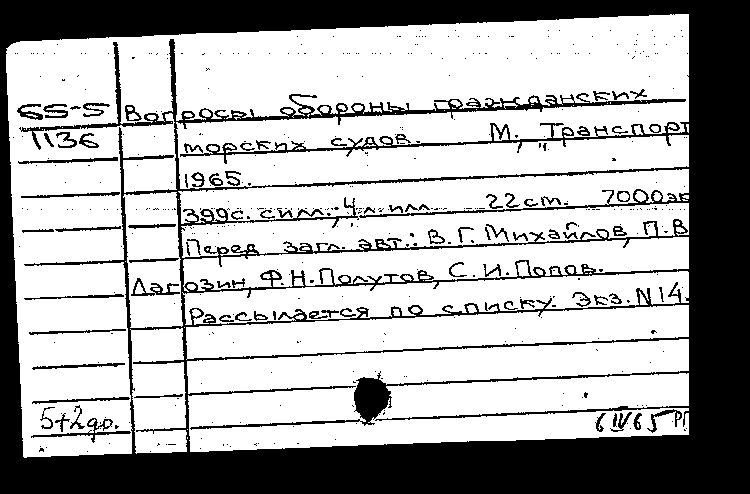 65-5 Вопросы обороны гражданских
1136 морских судов. М., „Транспорт
1965.
399с. силл.; 4л. илл. 22ст. 7000эк
Перед загл. авт.: В. Г. Михайлов, П. В
Лагозин, Ф. Н. Полутов, С. И. Попов.
Рассылается по списку. Экз. N 14.
5+2до.
6 IV 65 РГ